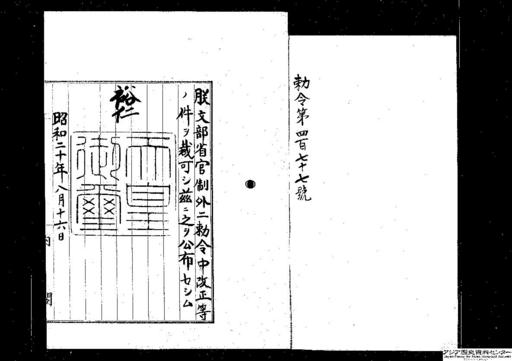 勅令第四百七十七號
朕文部省官制外二勅令中改正等
ノ件ヲ裁可シ茲ニ之ヲ公布セシム
裕仁
天皇御璽
昭和二十年八月十六日
内閣
アジア歴史資料センター